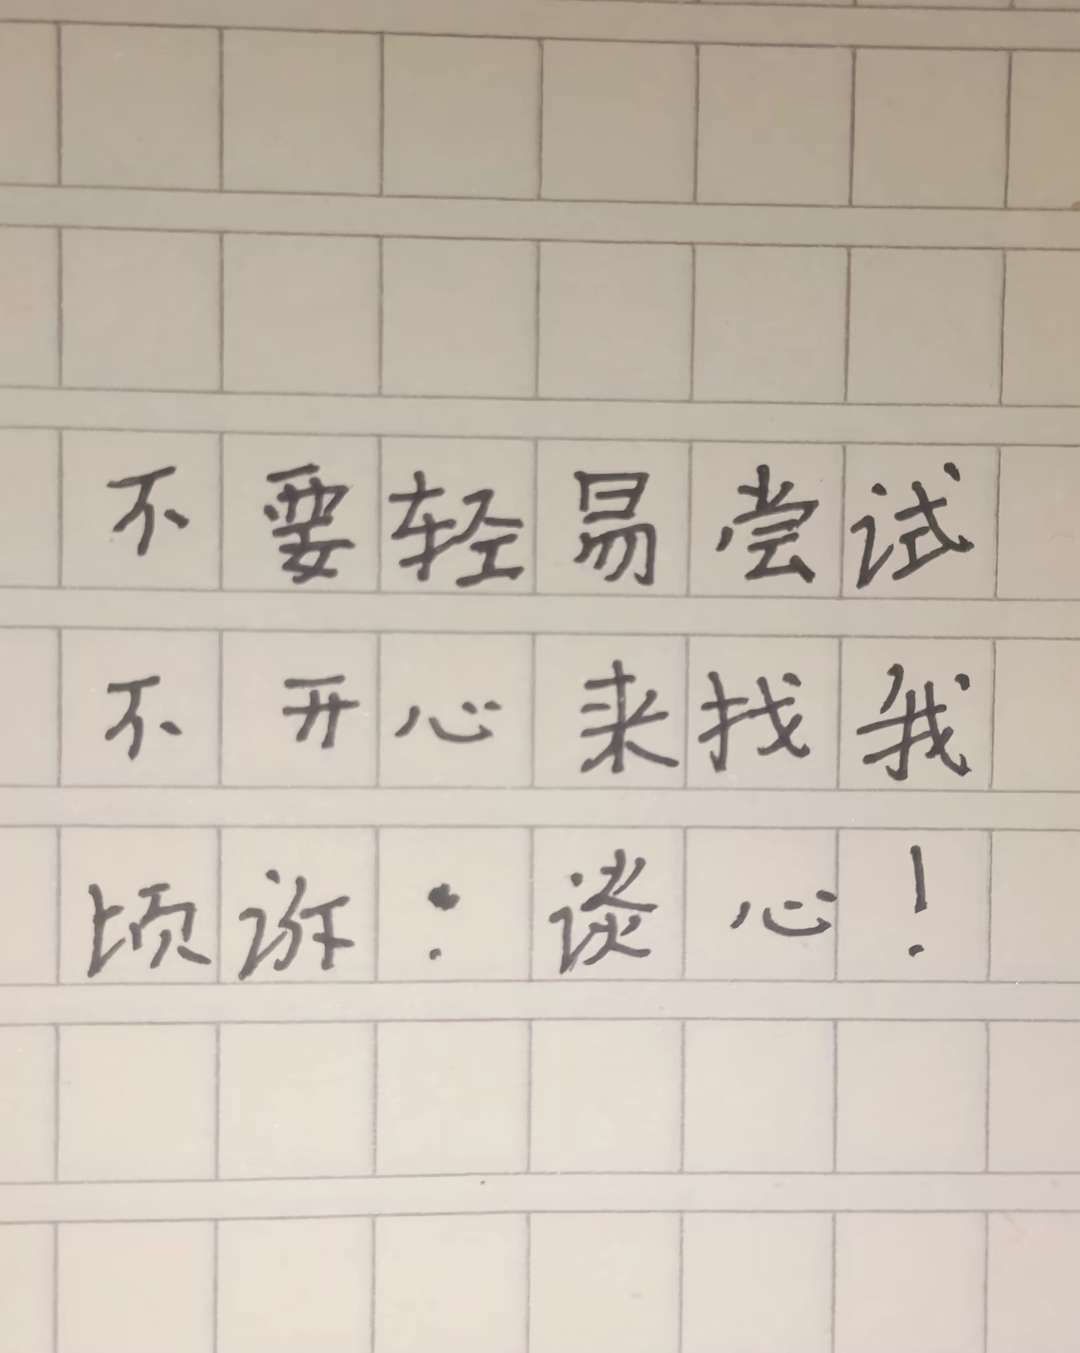 不要轻易尝试
不开心来找我
顷诉：谈心！